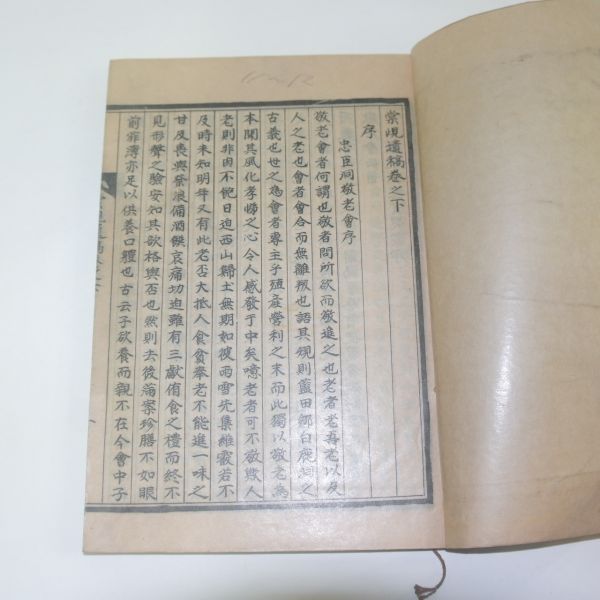 棠峴遺稿卷之下
序
忠臣洞敬老會序
敬老會者何謂也敬者問所欲而敬進之也老者老吾老以及
人之老也會者會合而無離叛也語其規則藍田鄉白鹿洞之
古義也世之為會者專主于殖產營利之末而此獨以敬老為
本關其風化孝悌之心令人感發于中矣噫老者可不敬歟人
老則非肉不飽日迫西山歸土無期如彼雨雪先集維霰若不
及時未知明年又有此老否大抵人食貧奉老不能進一味之
甘及喪與祭浪備酒饌哀痛切迫雖有三獻侑食之禮而終不
見形聲之驗安知其歆格與否也然則去後滿案珍膳不如眼
前菲薄亦足以供養口體也古云子欲養而親不在今會中子
11~12